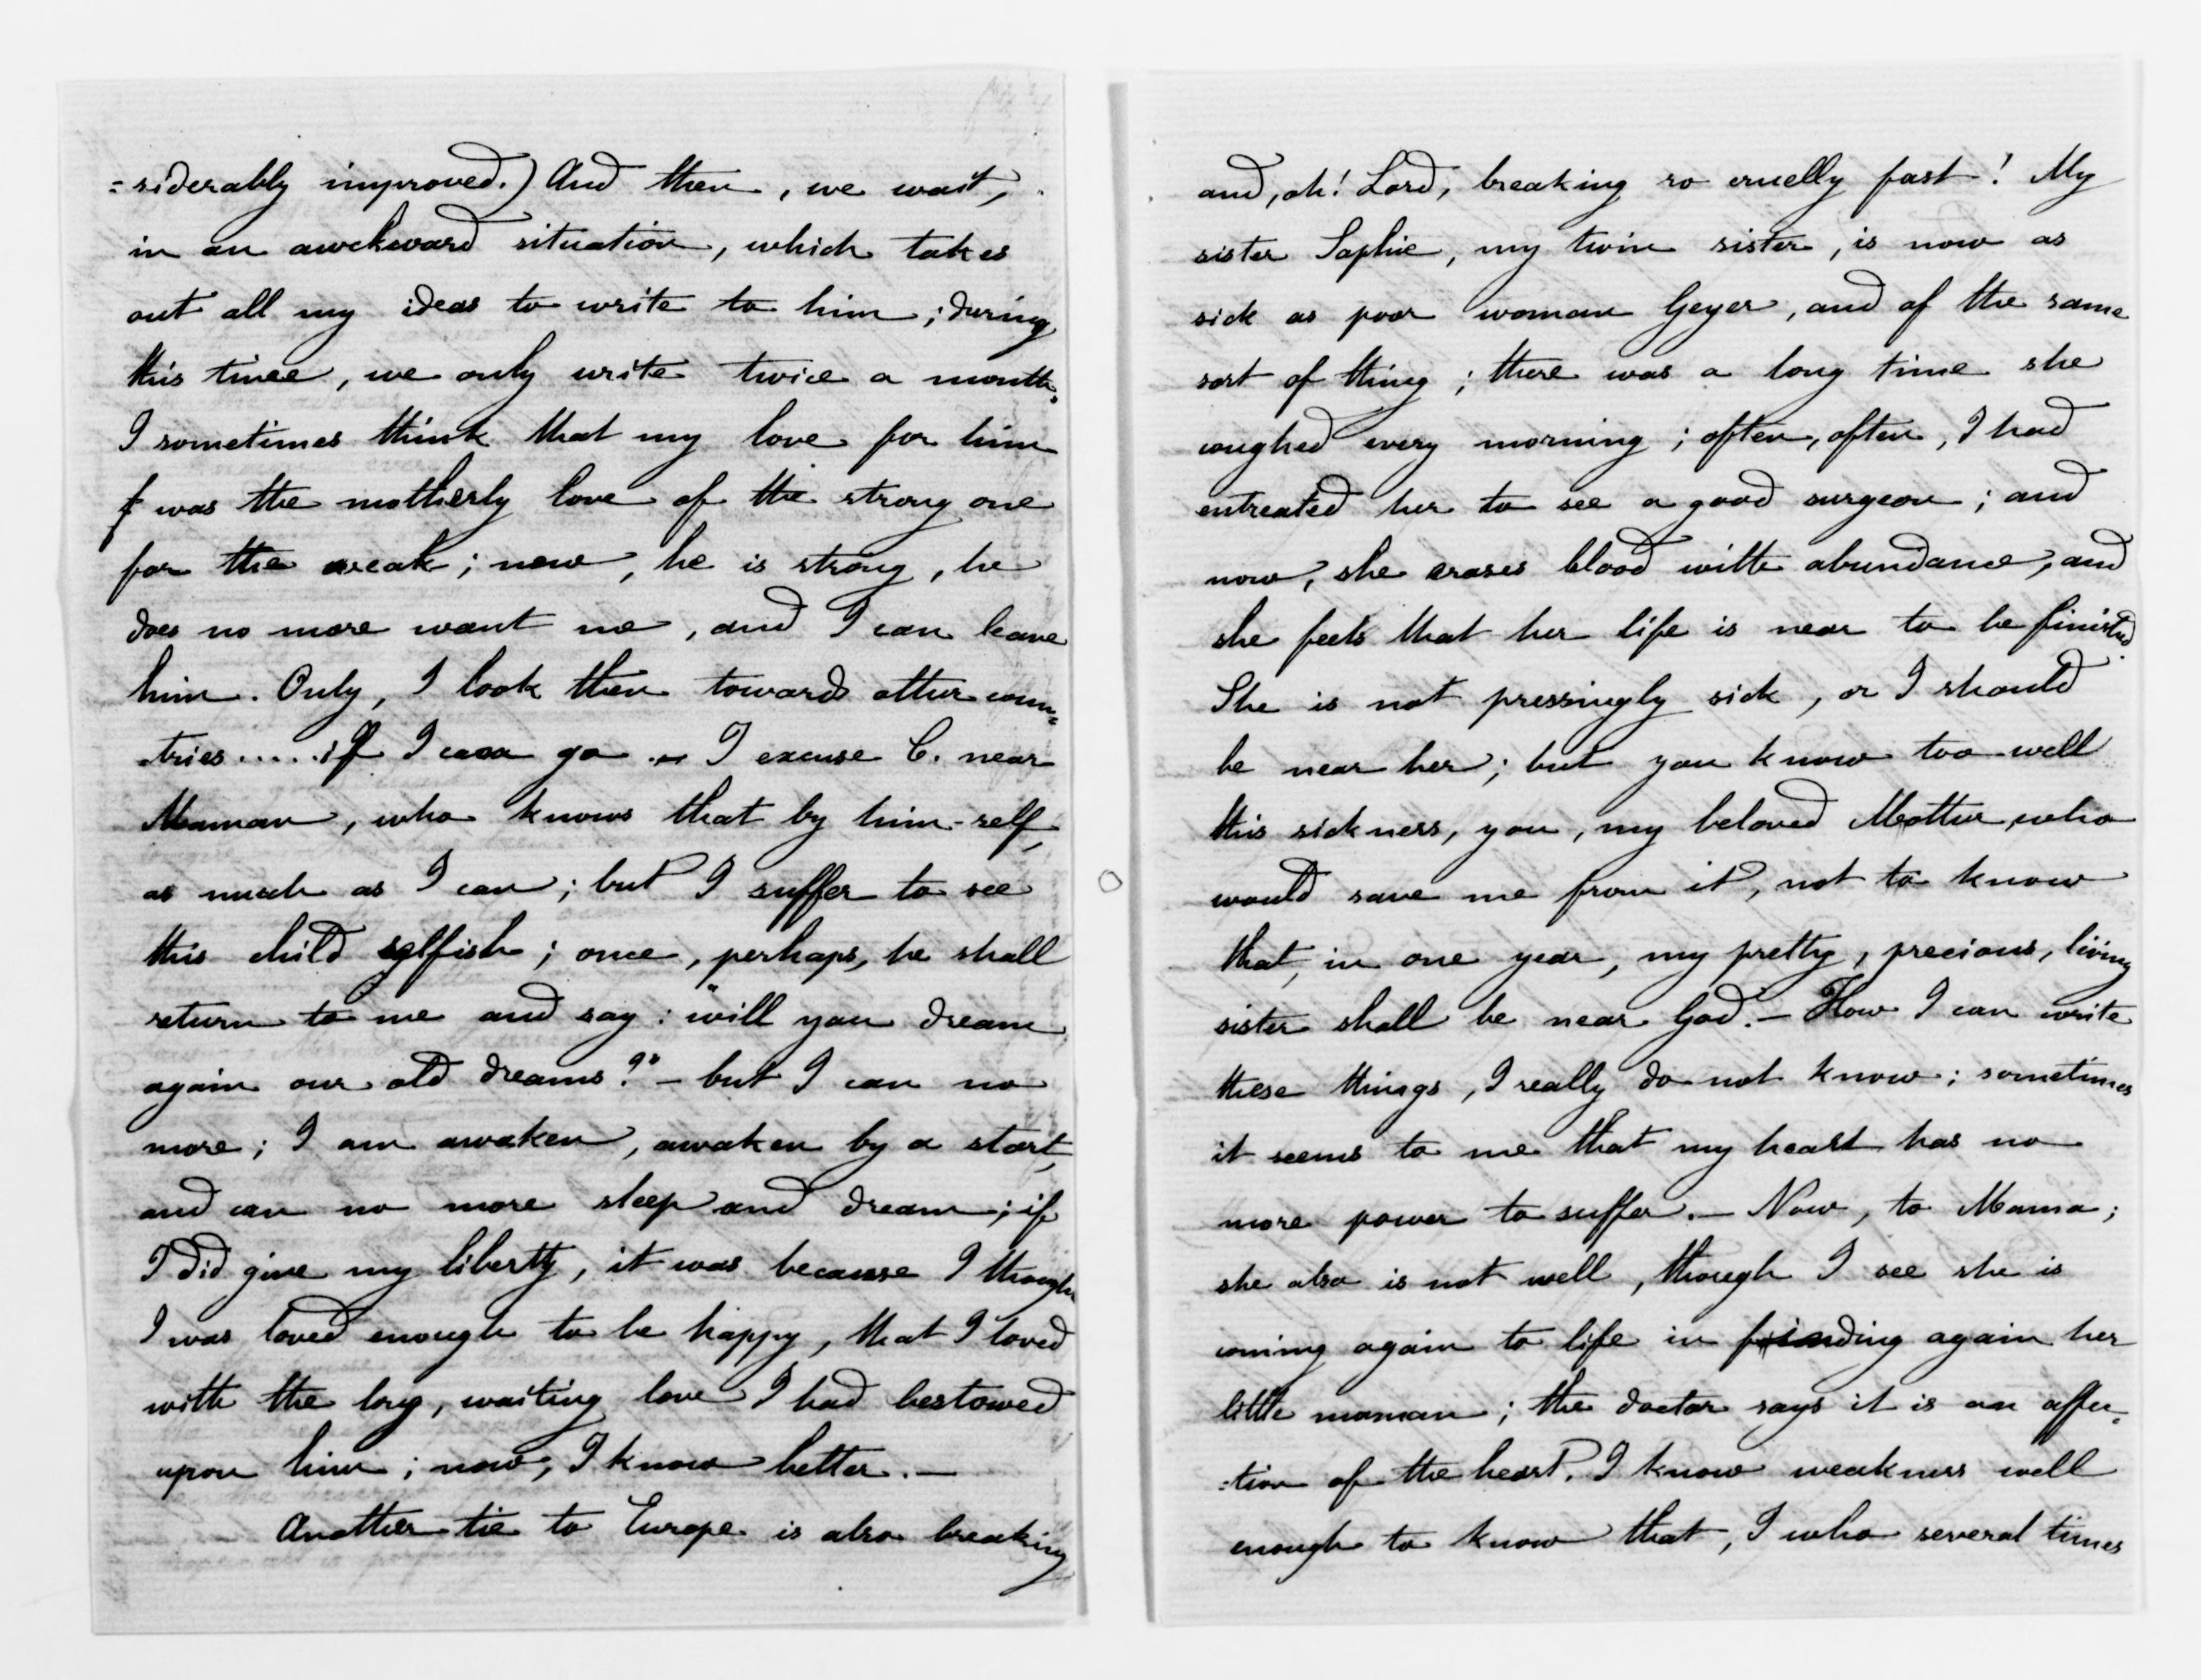 =siderably improved.) And then, we wait,
in an awckward situation, which takes
out all my ideas to write to him; during
this time, we only write twice a month.
I sometimes think that my love for him
was the motherly love of the strong one
for the weak; now, he is strong, he
does no more want me, and I can leave
him. Only, I look then towards other coun=
tries..... if I can go. — I excuse C. near
Maman, who knows that by him-self,
as much as I can; but I suffer to see
this child selfish; once, perhaps, he shall
return to me and say: "will you dream
again our old dreams?" – but I can no
more; I am awaken, awaken by a start,
and can no more sleep and dream; if
I did give my liberty, it was because I though
I was loved enough to be happy, that I loved
with the long, waiting love I had bestowed
upon him; now, I know better. —
Another tie to Europe is also breaking
and, oh! Lord, breaking so cruelly fast! My
sister Sophie, my twin sister, is now as
sick as poor woman Geyer, and of the same
sort of thing; there was a long time she
coughed every morning; often, often, I had
entreated her to see a good surgeon; and
now, she erases blood with abundance, and
she feels that her life is near to be finished.
She is not pressingly sick, or I should
be near her; but you know too well
this sickness, you, my beloved Mother, who
would save me from it, not to know
that, in one year, my pretty, precious, living
sister shall be near God. – How I can write
these things, I really do not know; sometimes
it seems to me that my heart has no
more power to suffer. – Now, to Mama;
she also is not well, though I see she is
coming again to life in finding again her
little maman; the doctor says it is an affec=
=tion of the heart. I know weakness well
enough to know that, I who several times